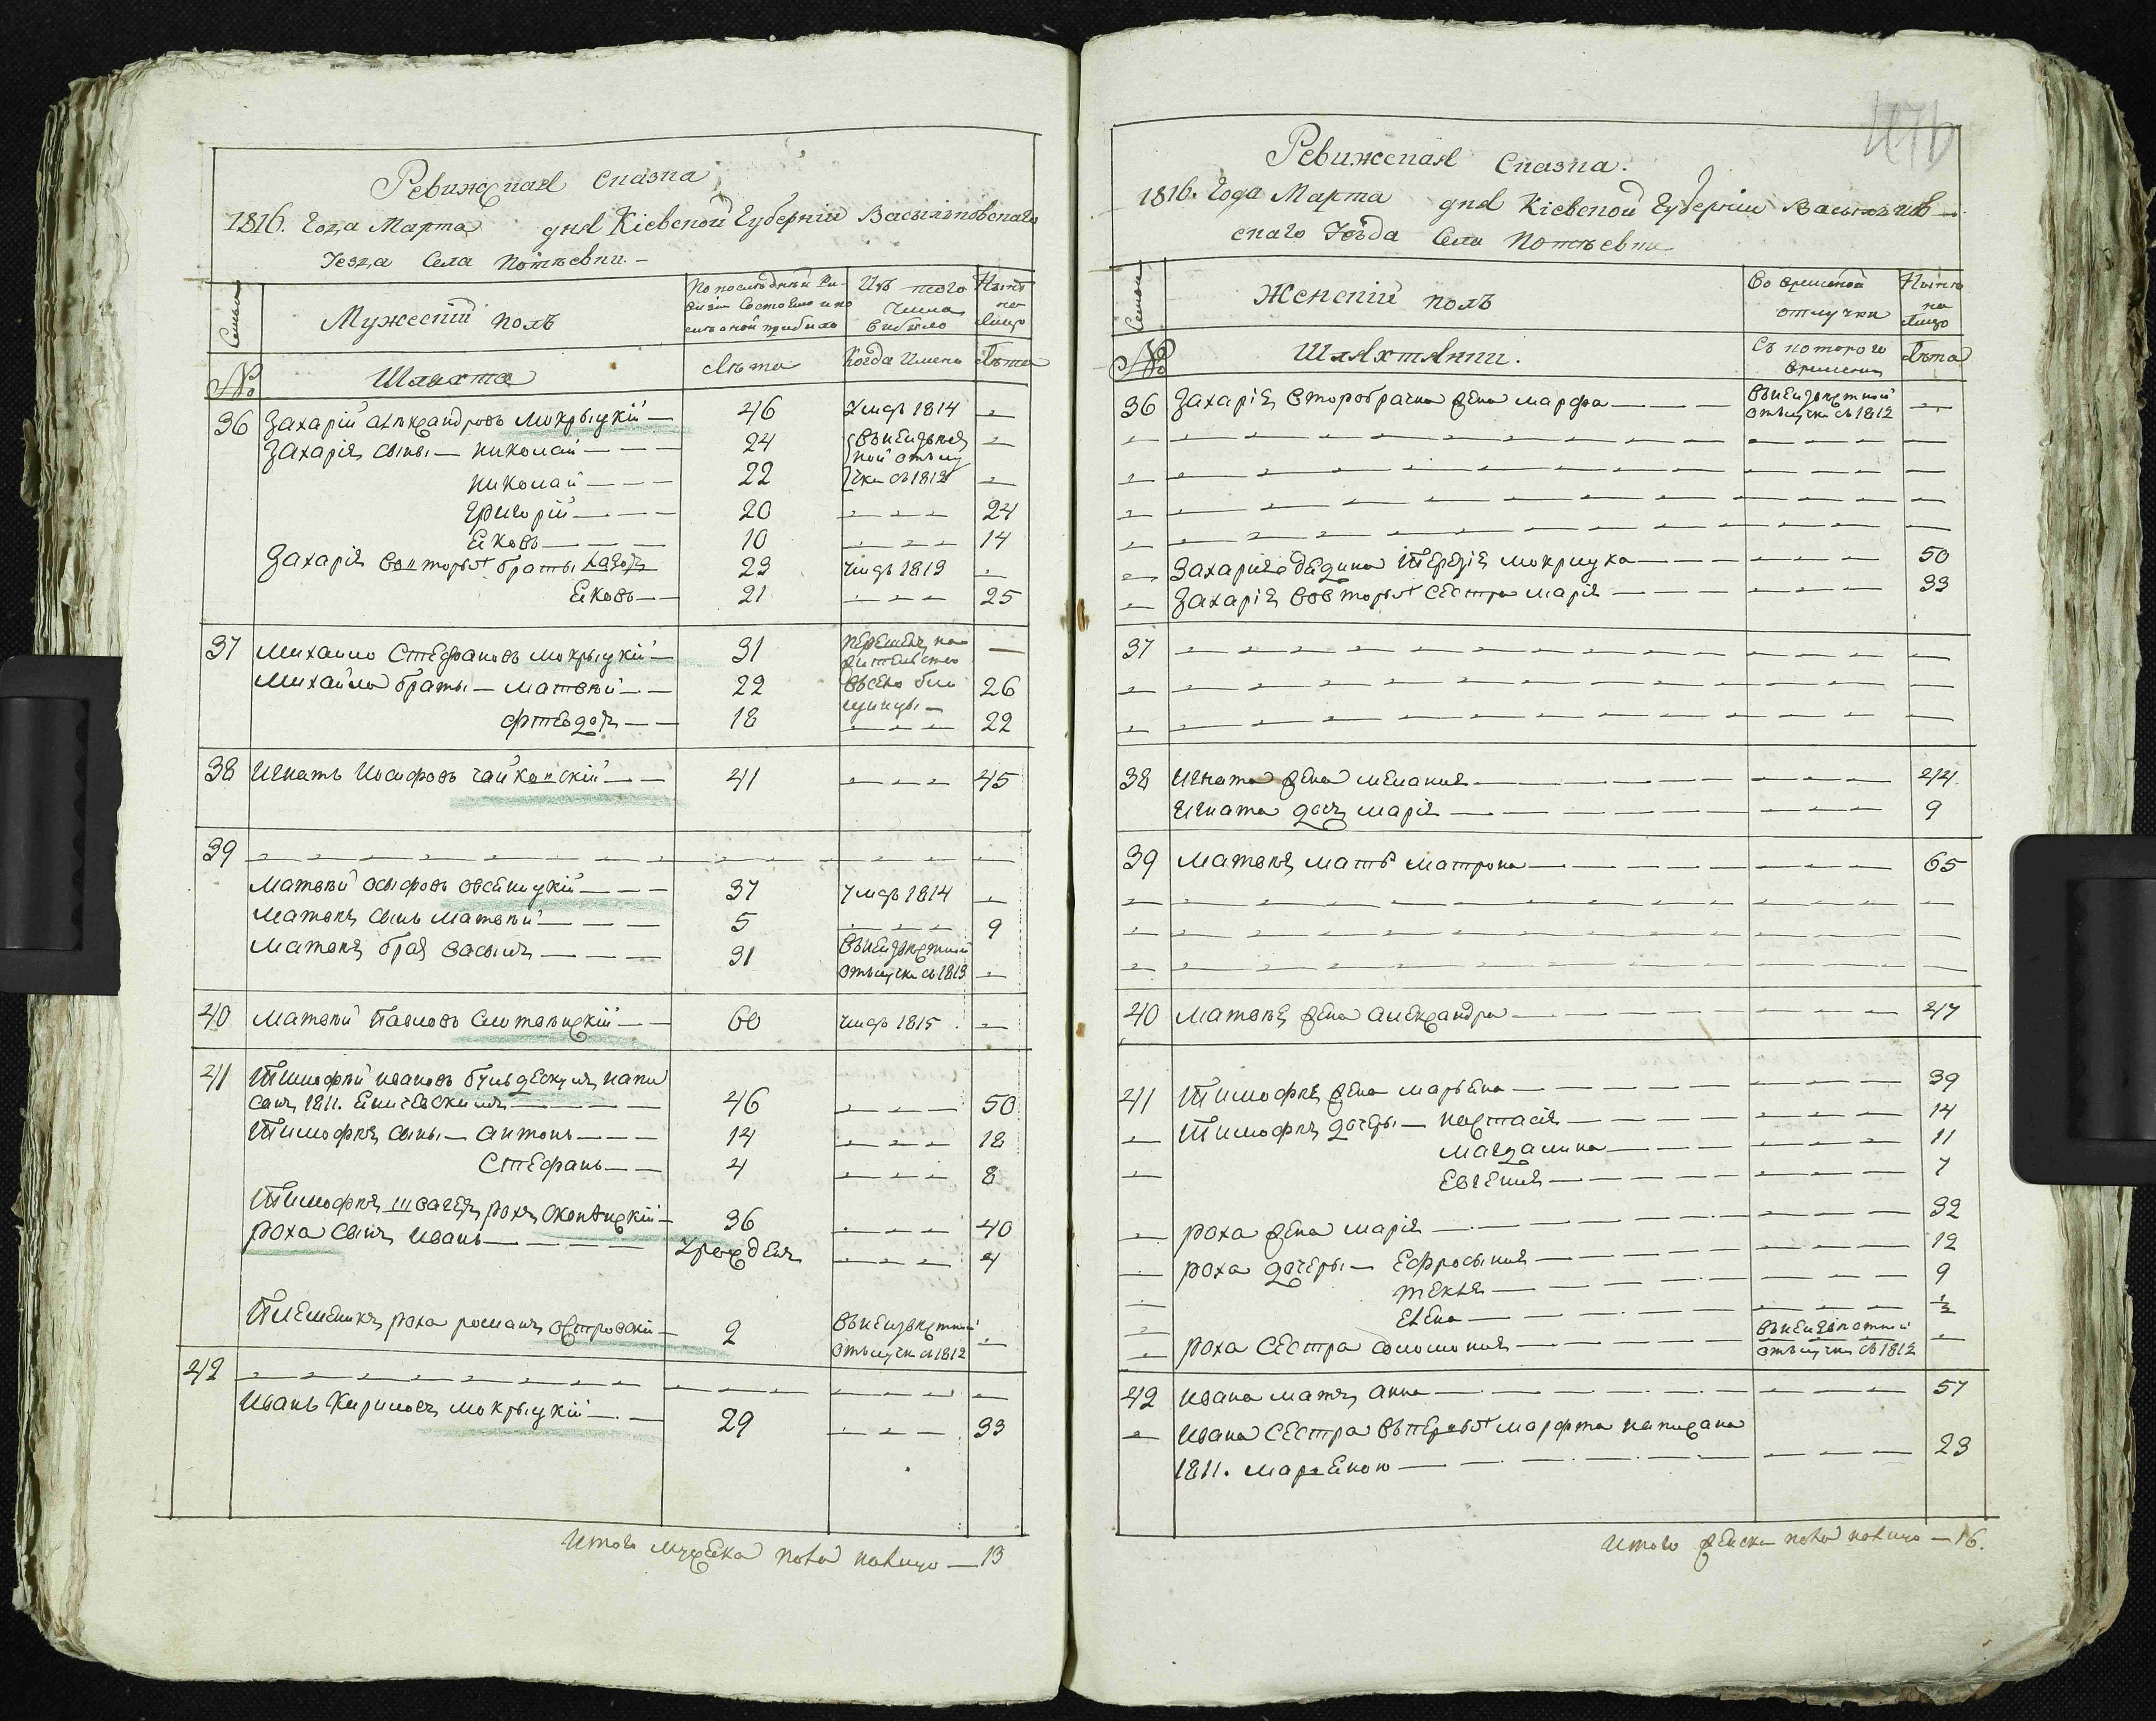 Ревижская Сказка
1816. Года Марта дня Кіевской Губерніи Васильковскаго
Уезда Села Потѣевки.
Семьи
Мужескій полъ
По последнѣй Ре-
визіи Состояло и по
слѣ оной прибыло
Изъ того
Числа
выбыло
Нынѣ
на
Лицо
№
Шляхта
Лѣта
Когда Имено
Лѣта
36 Захарій Александровъ Мокрыцкій 46 Умръ 1814
Захарія сыны Николай 24 Въ неизвѣст
ной отлу
Николай 22 чки съ 1812
Григорій 20 24
Яковъ 10 14
Захарія Вовторыхъ браты 23 Умръ 1813
Яковъ 21 25
37 Михайло Стефановъ Мокрыцкій 31 перешелъ на
жительство
Михайла браты Матвѣй 22 въ село 26
Фтеодоръ 18 22
38 Игнатъ Иосифовъ Чайковскій 41 45
39
Матвѣй Осифовъ 37 Умръ 1814
Матвѣя сынъ Матвѣй 5 9
Матвѣя братъ Василь 31 Въ неизвѣстной
отлучки съ 1813
40 Матвѣй Павловъ 60 Умръ 1815
41 Тимофѣй Ивановъ напи
санъ 1811. 46 50
Тимофѣя сыны Антонъ 14 18
Стефанъ 4 8
Тимофѣя Швагеръ Рохъ 36 40
Роха сынъ Иванъ Урожденъ 4
Племеникъ Роха Романъ Островскій 2 Въ неизвѣстной
отлучки съ 1812
42
Иванъ Кириловъ Мокрыцкій 29 33
Итого Мужеска пола налицо 13
Ревижская Сказка.
1816. Года Марта дня Кіевской Губерніи Васильков-
скаго Уезда Села Потѣевки
Семьи
Женскій полъ
Во временой
отлучки
Нынѣ
на
Лицо
№
Шляхтянки.
Съ которого
времени
Лѣта
36 Захарія второбрачна жена Марфа Въ неизвѣстной
отлучки съ 1812
Захарія Терезія Мокрицка 50
Захарія Вовторыхъ сестра Марія 33
37
38 Игната жена Меланія 44
Игната дочь Марія 9
39 Матвѣя мать Матрона 65
40 Матвѣя жена Александра 47
41 Тимофѣя жена Марьена 39
Тимофѣя дочеры Настасія 14
Магдалина 11
Евгенія 7
Роха жена Марія 32
Роха дочеры Ефросынія 12
Текля 9
Елена ½
Роха сестра Соломонія Въ неизвѣстной
отлучки съ 1812
42 Ивана мать Анна 57
Ивана сестра въ первыхъ Марфта написана
1811. Марьеною 23
Итого женска пола налицо 16.